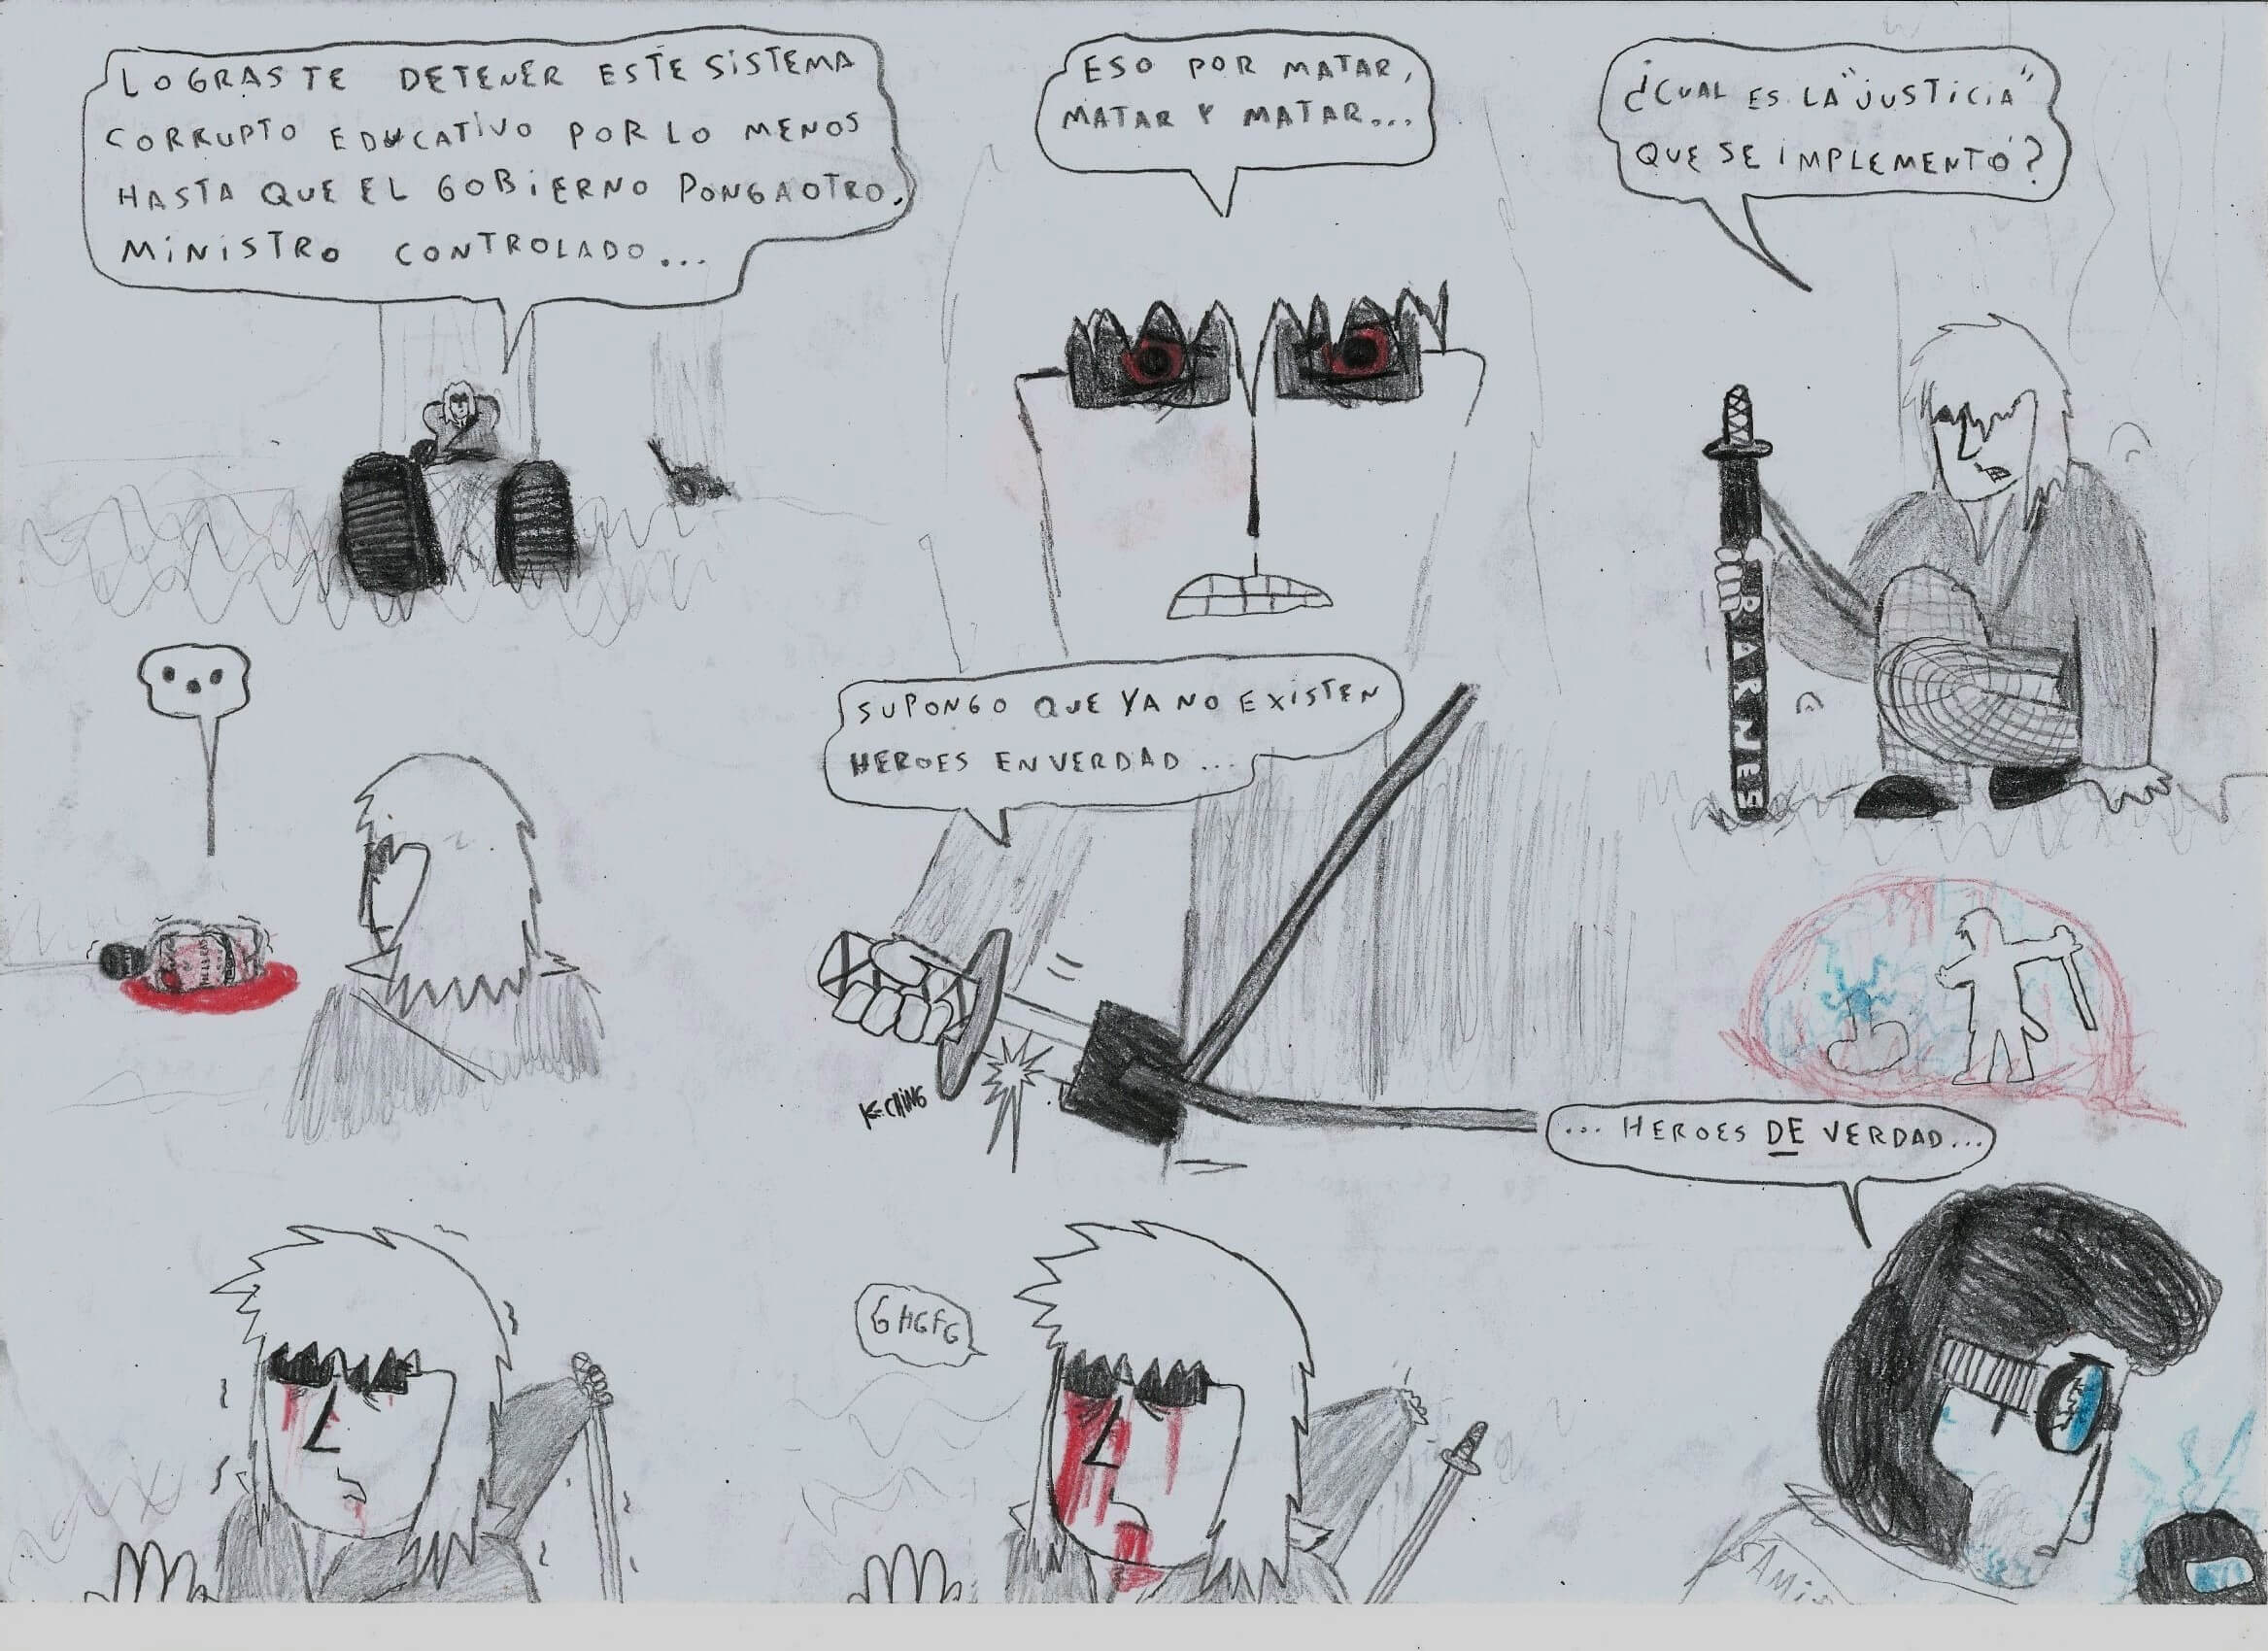 LOGRASTE DETENER ESTE SISTEMA
CORRUPTO EDUCATIVO POR LO MENOS
HASTA QUE EL GOBIERNO PONGA OTRO,
MINISTRO CONTROLADO...
ESO POR MATAR,
MATAR Y MATAR...
¿CUAL ES LA "JUSTICIA"
QUE SE IMPLEMENTÓ?
BARNES
...
SUPONGO QUE YA NO EXISTEN
HEROES EN VERDAD...
K-CHING
... HEROES DE VERDAD...
GHGFG